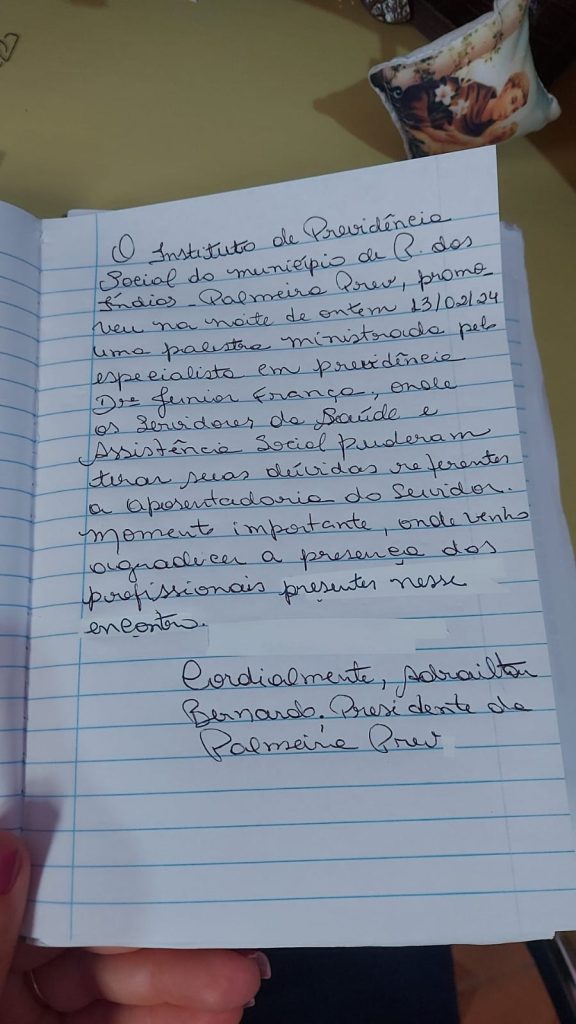 O Instituto de Previdência
Social do município de P. dos
Índios - Palmeira Prev, promo
veu na noite de ontem 13/02/24
uma palestra ministrada pelo
especialista em previdência
Dre Junior França, onde
os servidores da Saúde e
Assistência Social puderam
tirar suas dúvidas referentes
a aposentadoria do Servidor.
Momento importante, onde venho
agradecer a presença dos
profissionais presentes nesse
encontro.
Cordialmente, Adrailton
Bernardo. Presidente da
Palmeira Prev